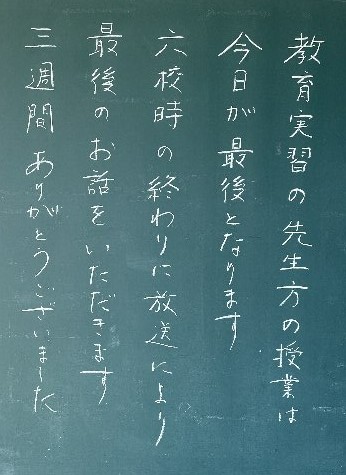 教育実習の先生方の授業は
今日が最後となります
六校時の終わりに放送により
最後のお話をいただきます
三週間ありがとうございました